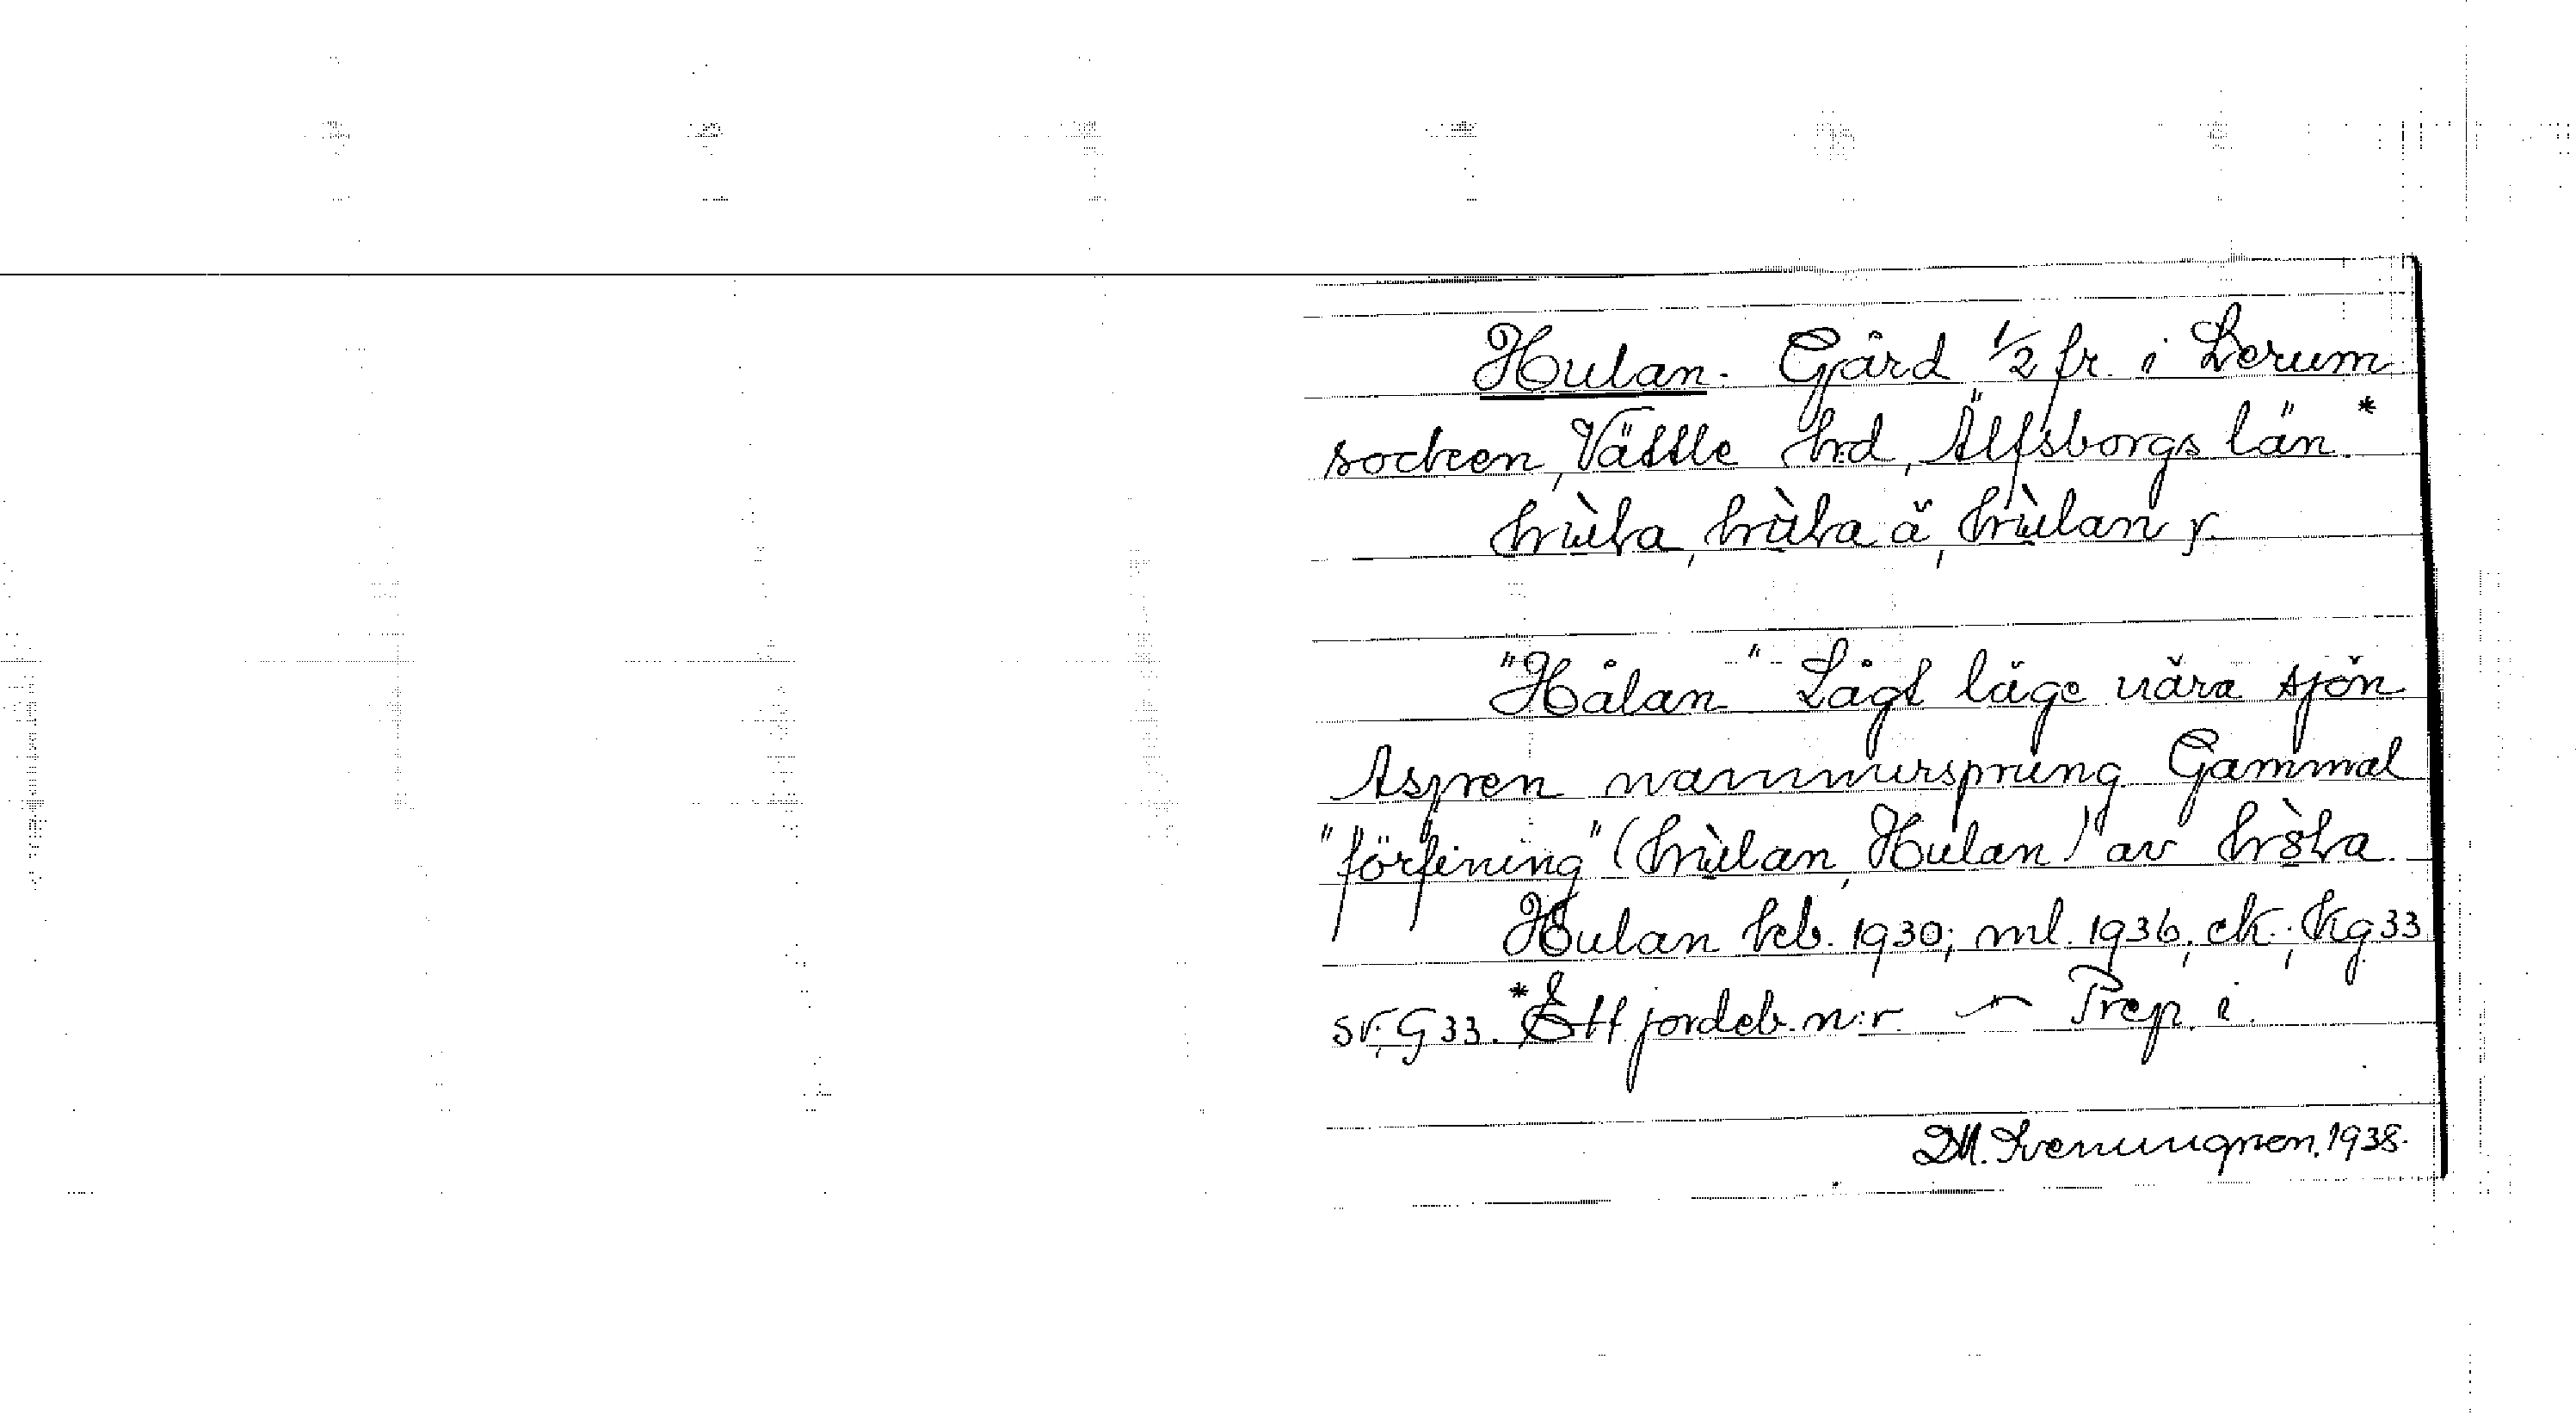 Hulan. Gård 1/2 fr. i Lerum
socken, Vättle hd, Älfsborgs län.*
hùla, hùla ä, hùlan y.
"Hålan" Lågt läge nära sjön
Aspren namnursprung Gammal
"förfining" (hùlan, Hulan) av
Hulan keb. 1930; ml. 1936, ek.; kg 33
sv; G 33. *Ett jordeb. n:r. Prep. i.
1938.